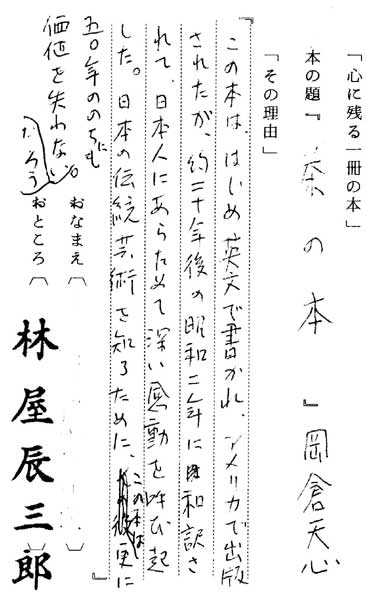 「心に残る一冊の本」
本の題『茶の本』岡倉天心
「その理由」
『この本は、はじめ英文で書かれ、アメリカで出版
されたが、約二十年後の昭和二年に和訳さ
れて、日本人にあらためて深い感動を呼び起
した。日本の伝統芸術を知るために、この本は更に
五〇年ののちにも
価値を失わないだろう。』
おなまえ〔林屋辰三郎〕
おところ〔